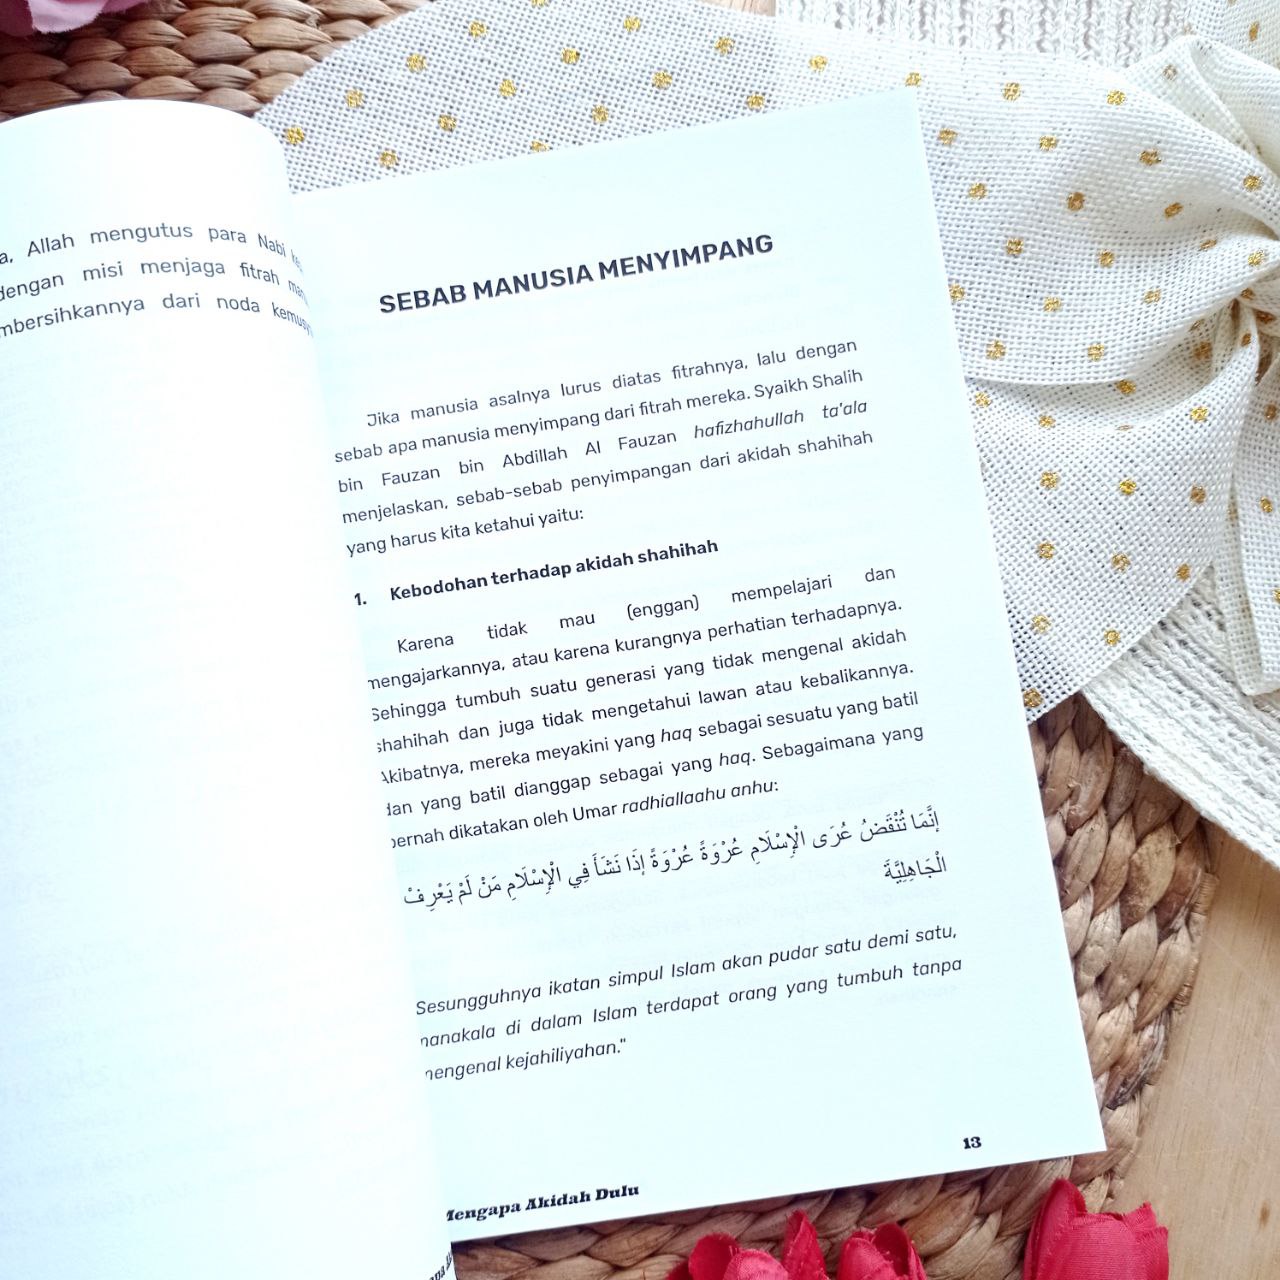 a, Allah mengutus para Nabi
dengan misi menjaga fitrah
mbersihkannya dari noda
SEBAB MANUSIA MENYIMPANG
Jika manusia asalnya lurus diatas fitrahnya, lalu dengan
sebab apa manusia menyimpang dari fitrah mereka. Syaikh Shalih
bin Fauzan bin Abdillah Al Fauzan hafizhahullah ta'ala
menjelaskan, sebab-sebab penyimpangan dari akidah shahihah
yang harus kita ketahui yaitu:
1. Kebodohan terhadap akidah shahihah
Karena tidak mau (enggan) mempelajari dan
mengajarkannya, atau karena kurangnya perhatian terhadapnya.
Sehingga tumbuh suatu generasi yang tidak mengenal akidah
shahihah dan juga tidak mengetahui lawan atau kebalikannya.
Akibatnya, mereka meyakini yang haq sebagai sesuatu yang batil
dan yang batil dianggap sebagai yang haq. Sebagaimana yang
pernah dikatakan oleh Umar radhiallaahu anhu:
إِنَّمَا تُنْقَضُ عُرَى الْإِسْلَامِ عُرْوَةً عُرْوَةً إِذَا نَشَأَ فِي الْإِسْلَامِ مَنْ لَمْ يَعْرِفْ
الْجَاهِلِيَّةَ
Sesungguhnya ikatan simpul Islam akan pudar satu demi satu,
manakala di dalam Islam terdapat orang yang tumbuh tanpa
mengenal kejahiliyahan."
13
Mengapa Akidah Dulu